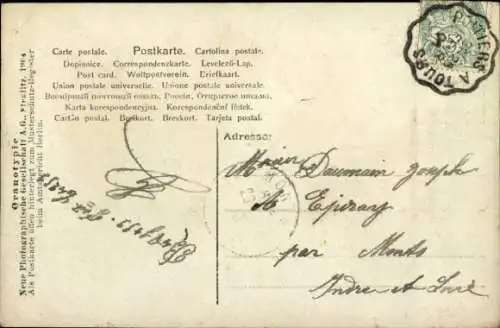 Carte postale. Postkarte. Cartolina postale.
Dopisnice. Correspondenzkarte. Levelező-Lap.
Post card. Weltpostverein. Briefkaart.
Union postale universelle. Unione postale universale.
Всемірный почтовый союзъ. Россія. Открытое письмо.
Karta korespondencyjna. Korespondenční lístek.
Cartão postal. Brefkort. Brevkort. Tarjeta postal.
Adresse:
Oranotypie
Neue Photographische Gesellschaft A.G., Steglitz. 1904
Als Postkarte offen hinterlegt zum Musterschutz-Register
beim Amtsgericht Berlin.
POITIERS A TOURS
Daumain Joseph
par Monts
Indre et Loire